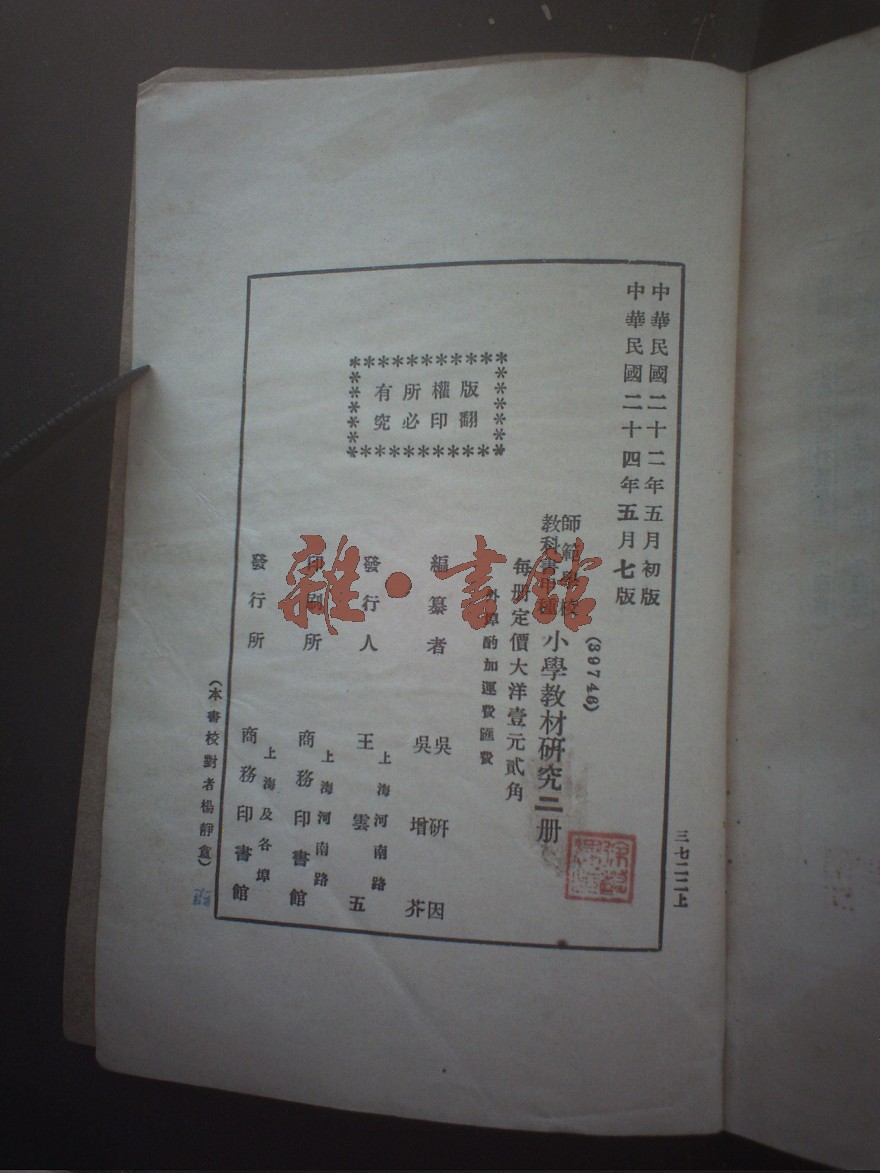 中華民國二十二年五月初版
中華民國二十四年五月七版
(39746)
師範學校
教科書甲種
小學教材研究二册
每册定價大洋壹元貳角
外埠酌加運費匯費
版權所有
翻印必究
編纂者
吳研因
吳增芥
發行人
上海河南路
王雲五
印刷所
上海河南路
商務印書館
發行所
上海及各埠
商務印書館
(本書校對者楊靜盦)
三七二二上
雜·書館